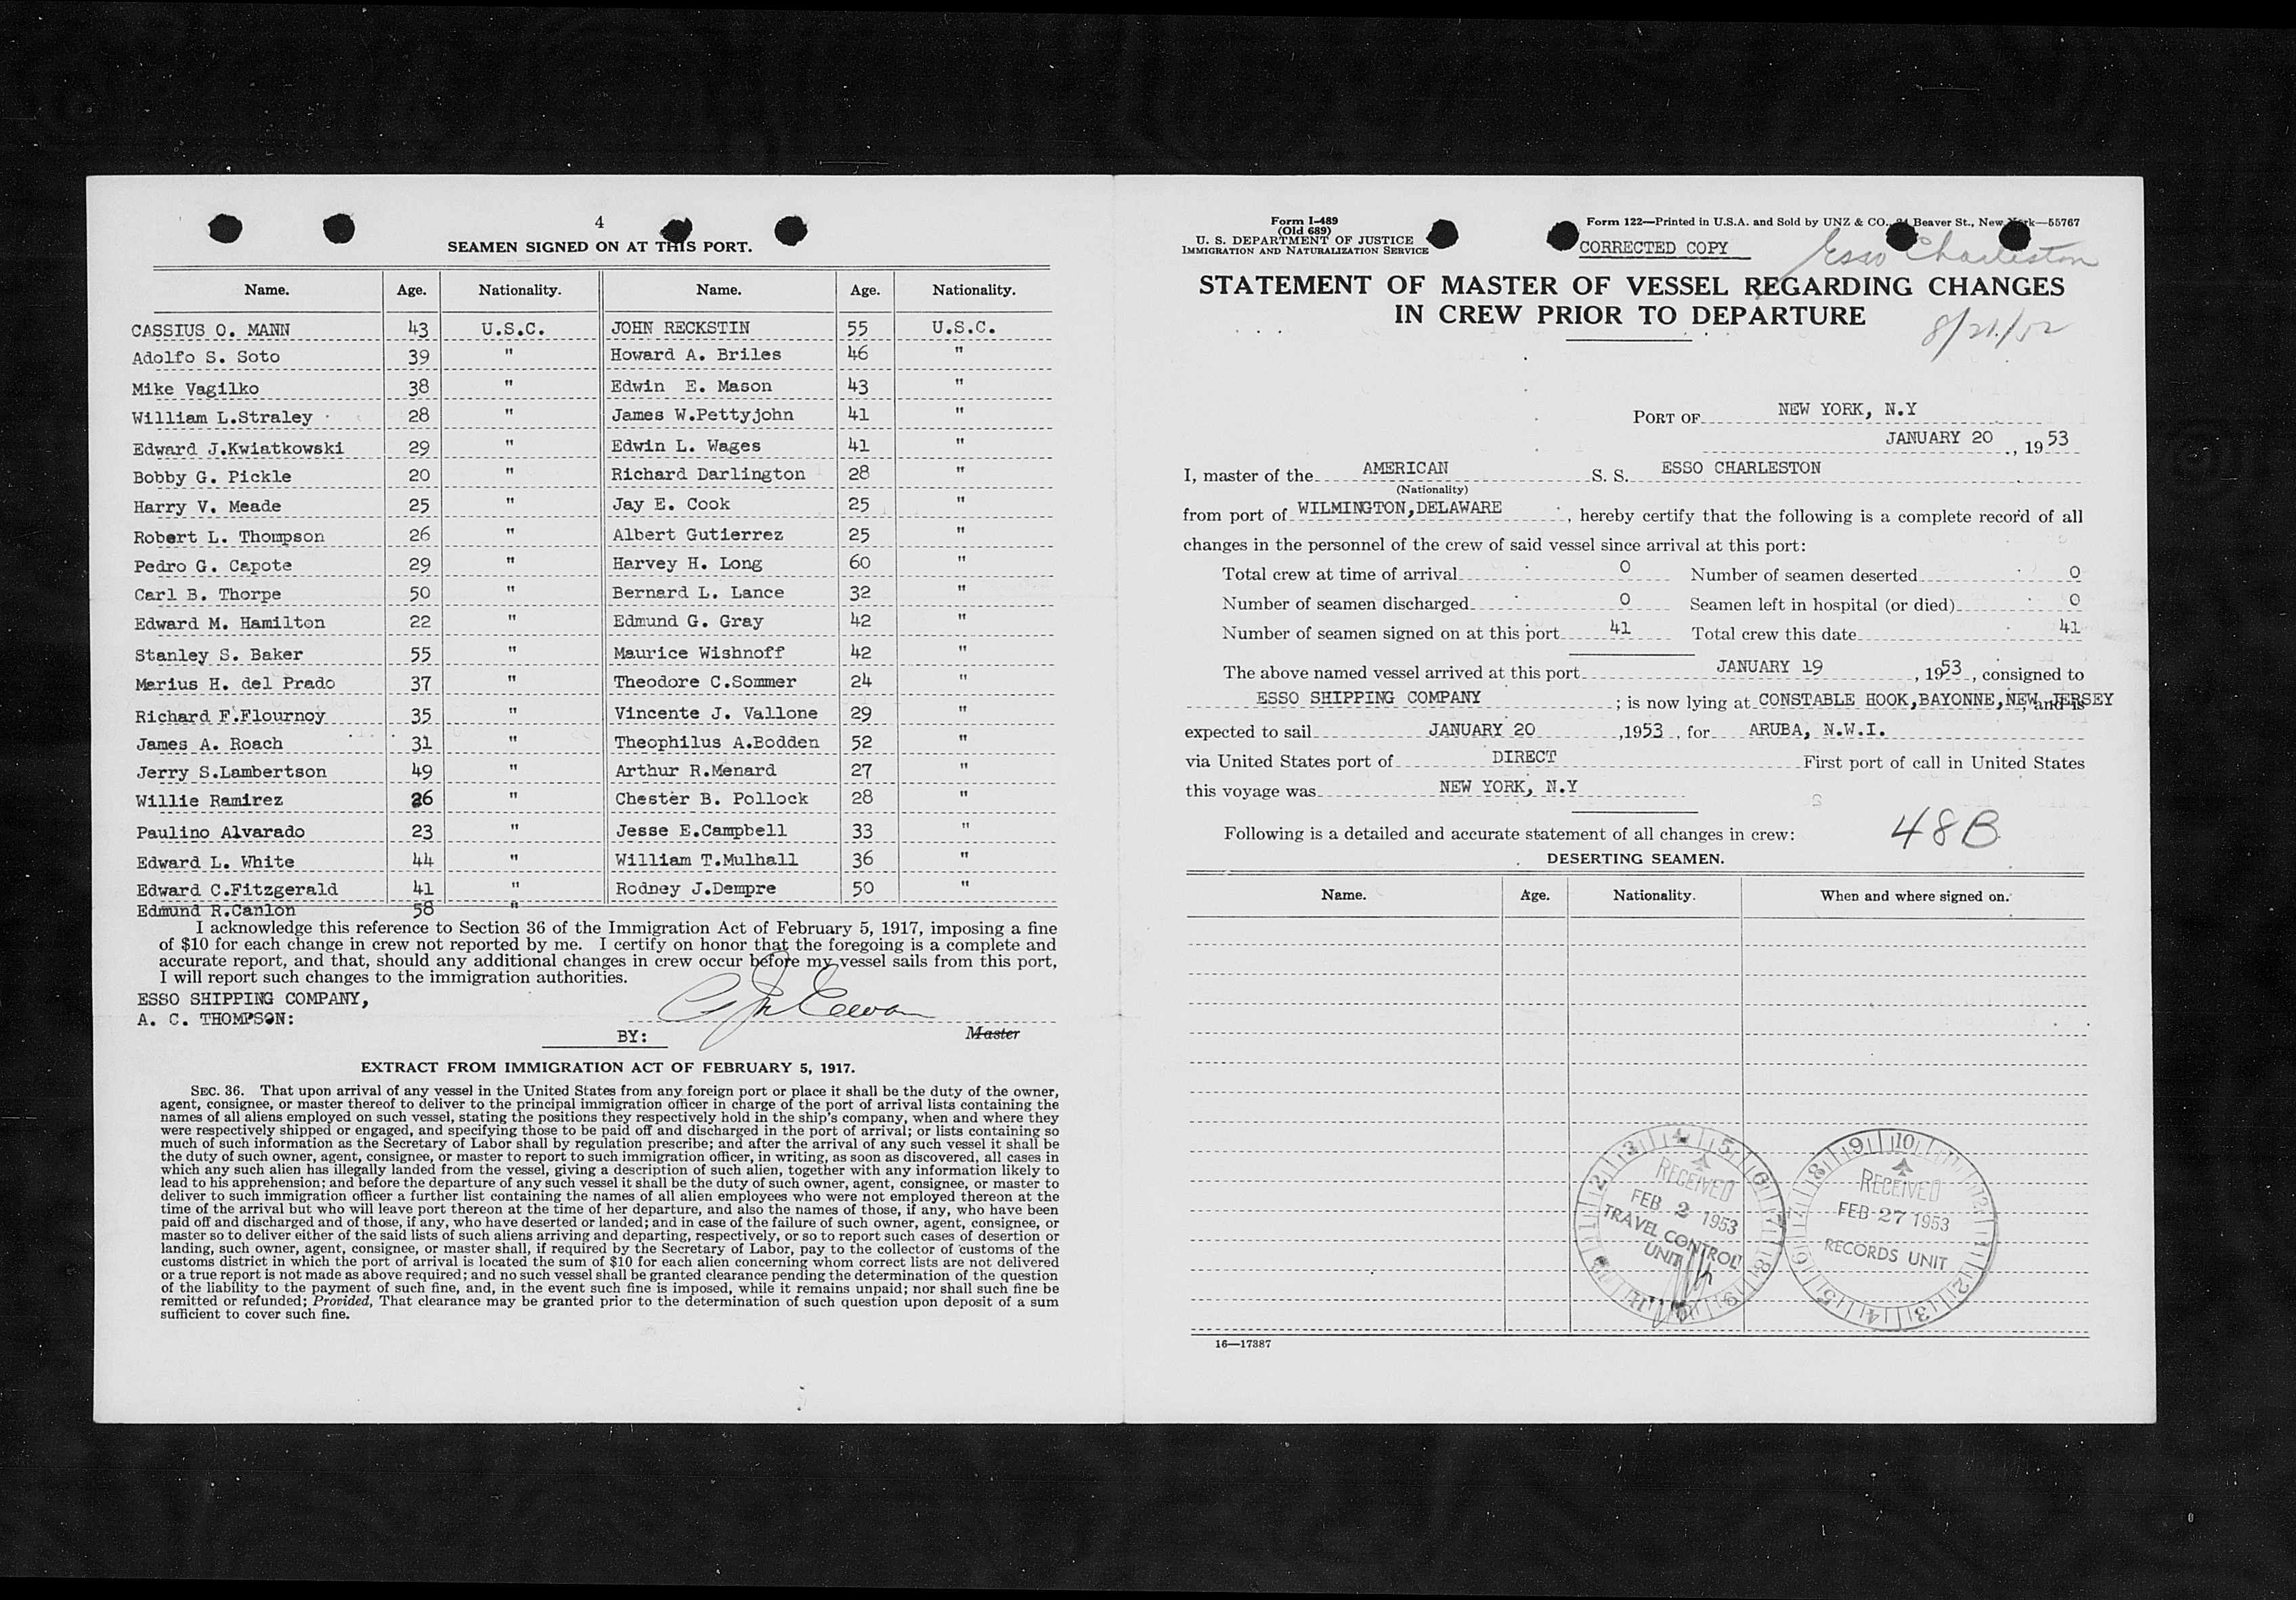 4
SEAMEN SIGNED ON AT THIS PORT.
Name. Age. Nationality. Name. Age. Nationality.
CASSIUS O. MANN 43 U.S.C. JOHN RECKSTIN 55 U.S.C.
Adolfo S. Soto 39 " Howard A. Briles 46 "
Mike Vagilko 38 " Edwin E. Mason 43 "
William L.Straley 28 " James W.Pettyjohn 41 "
Edward J.Kwiatkowski 29 " Edwin L. Wages 41 "
Bobby G. Pickle 20 " Richard Darlington 28 "
Harry V. Meade 25 " Jay E. Cook 25 "
Robert L. Thompson 26 " Albert Gutierrez 25 "
Pedro G. Capote 29 " Harvey H. Long 60 "
Carl B. Thorpe 50 " Bernard L. Lance 32 "
Edward M. Hamilton 22 " Edmund G. Gray 42 "
Stanley S. Baker 55 " Maurice Wishnoff 42 "
Marius H. del Prado 37 " Theodore C.Sommer 24 "
Richard F.Flournoy 35 " Vincente J. Vallone 29 "
James A. Roach 31 " Theophilus A.Bodden 52 "
Jerry S.Lambertson 49 " Arthur R.Menard 27 "
Willie Ramirez 26 " Chester B. Pollock 28 "
Paulino Alvarado 23 " Jesse E.Campbell 33 "
Edward L. White 44 " William T.Mulhall 36 "
Edward C.Fitzgerald 41 " Rodney J.Dempre 50 "
Edmund R.Canlon 58 "
I acknowledge this reference to Section 36 of the Immigration Act of February 5, 1917, imposing a fine
of $10 for each change in crew not reported by me. I certify on honor that the foregoing is a complete and
accurate report, and that, should any additional changes in crew occur before my vessel sails from this port,
I will report such changes to the immigration authorities.
ESSO SHIPPING COMPANY,
A. C. THOMPSON:
BY: Master
EXTRACT FROM IMMIGRATION ACT OF FEBRUARY 5, 1917.
SEC. 36. That upon arrival of any vessel in the United States from any foreign port or place it shall be the duty of the owner,
agent, consignee, or master thereof to deliver to the principal immigration officer in charge of the port of arrival lists containing the
names of all aliens employed on such vessel, stating the positions they respectively hold in the ship's company, when and where they
were respectively shipped or engaged, and specifying those to be paid off and discharged in the port of arrival; or lists containing so
much of such information as the Secretary of Labor shall by regulation prescribe; and after the arrival of any such vessel it shall be
the duty of such owner, agent, consignee, or master to report to such immigration officer, in writing, as soon as discovered, all cases in
which any such alien has illegally landed from the vessel, giving a description of such alien, together with any information likely to
lead to his apprehension; and before the departure of any such vessel it shall be the duty of such owner, agent, consignee, or master to
deliver to such immigration officer a further list containing the names of all alien employees who were not employed thereon at the
time of the arrival but who will leave port thereon at the time of her departure, and also the names of those, if any, who have been
paid off and discharged and of those, if any, who have deserted or landed; and in case of the failure of such owner, agent, consignee, or
master so to deliver either of the said lists of such aliens arriving and departing, respectively, or so to report such cases of desertion or
landing, such owner, agent, consignee, or master shall, if required by the Secretary of Labor, pay to the collector of customs of the
customs district in which the port of arrival is located the sum of $10 for each alien concerning whom correct lists are not delivered
or a true report is not made as above required; and no such vessel shall be granted clearance pending the determination of the question
of the liability to the payment of such fine, and, in the event such fine is imposed, while it remains unpaid; nor shall such fine be
remitted or refunded; Provided, That clearance may be granted prior to the determination of such question upon deposit of a sum
sufficient to cover such fine.
Form I-489
(Old 689)
U. S. DEPARTMENT OF JUSTICE
IMMIGRATION AND NATURALIZATION SERVICE
Form 122—Printed in U.S.A. and Sold by UNZ & CO., 24 Beaver St., New York—55767
CORRECTED COPY
Esso Charleston
STATEMENT OF MASTER OF VESSEL REGARDING CHANGES
IN CREW PRIOR TO DEPARTURE
8/21/52
PORT OF NEW YORK, N.Y
JANUARY 20, 1953
I, master of the AMERICAN S. S. ESSO CHARLESTON
(Nationality)
from port of WILMINGTON,DELAWARE, hereby certify that the following is a complete record of all
changes in the personnel of the crew of said vessel since arrival at this port:
Total crew at time of arrival 0 Number of seamen deserted 0
Number of seamen discharged 0 Seamen left in hospital (or died) 0
Number of seamen signed on at this port 41 Total crew this date 41
The above named vessel arrived at this port JANUARY 19, 1953, consigned to
ESSO SHIPPING COMPANY; is now lying at CONSTABLE HOOK,BAYONNE,NEW JERSEY, and is
expected to sail JANUARY 20, 1953, for ARUBA, N.W.I.
via United States port of DIRECT First port of call in United States
this voyage was NEW YORK, N.Y
Following is a detailed and accurate statement of all changes in crew:
48B
DESERTING SEAMEN.
Name. Age. Nationality. When and where signed on.
RECEIVED
FEB 2 1953
TRAVEL CONTROL
UNIT
RECEIVED
FEB 27 1953
RECORDS UNIT
16—17387